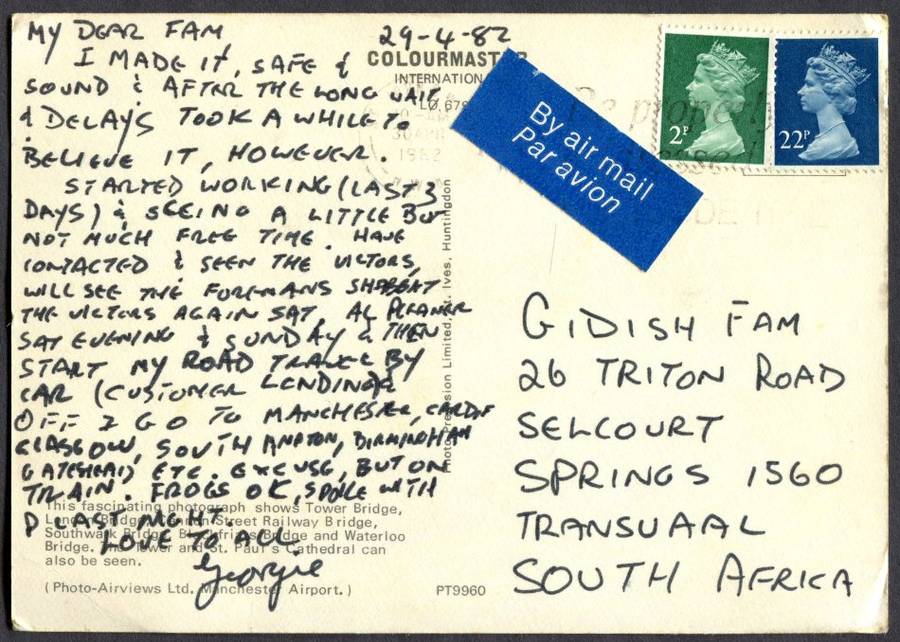 MY DEAR FAM 29-4-82
I MADE IT, SAFE &
SOUND & AFTER THE LONG WAIT
& DELAYS TOOK A WHILE TO
BELIEVE IT, HOWEVER.
STARTED WORKING (LAST 3
DAYS) & SEEING A LITTLE BUT
NOT MUCH FREE TIME. HAVE
CONTACTED & SEEN THE VICTORS,
WILL SEE THE FOREMANS SHABBAT
THE VICTORS AGAIN SAT, AL
SAT EVENING & SUNDAY & THEN
START MY ROAD TRAVEL BY
CAR (CUSTOMER LENDING)&
OFF I GO TO MANCHESTER, CARDIFF
GLASGOW, SOUTHAMPTON, BIRMINGHAM
GATESHEAD, ETC. EXCUSE, BUT ON
TRAIN. FROGS OK, SPOKE WITH
P LAST NIGHT.
LOVE TO ALL.
Georgie
COLOURMASTER
INTERNATIONAL
This fascinating photograph shows Tower Bridge,
London Bridge, Cannon Street Railway Bridge,
Southwark Bridge, Blackfriars Bridge and Waterloo
Bridge. The Tower and St. Paul's Cathedral can
also be seen.
(Photo-Airviews Ltd. Manchester Airport.)
PT9960
Photo Precision Limited, St. Ives, Huntingdon
By air mail
Par avion
2P
22P
1982
GIDISH FAM
26 TRITON ROAD
SELCOURT
SPRINGS 1560
TRANSVAAL
SOUTH AFRICA